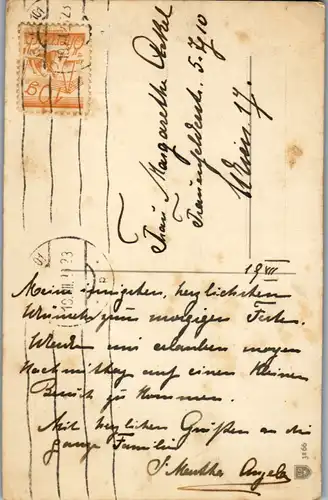 Frau Margarethe
Frauenfelderstr. 5. 7/10
Wien 17.
Meine innigsten, herzlichsten
Wünsche zum morgigen Feste.
Werde mir erlauben morgen
Nachmittag auf einen kleinen
Besuch zu kommen.
Mit herzlichen Grüßen an die
ganze Familie
S. Martha Angela
3166